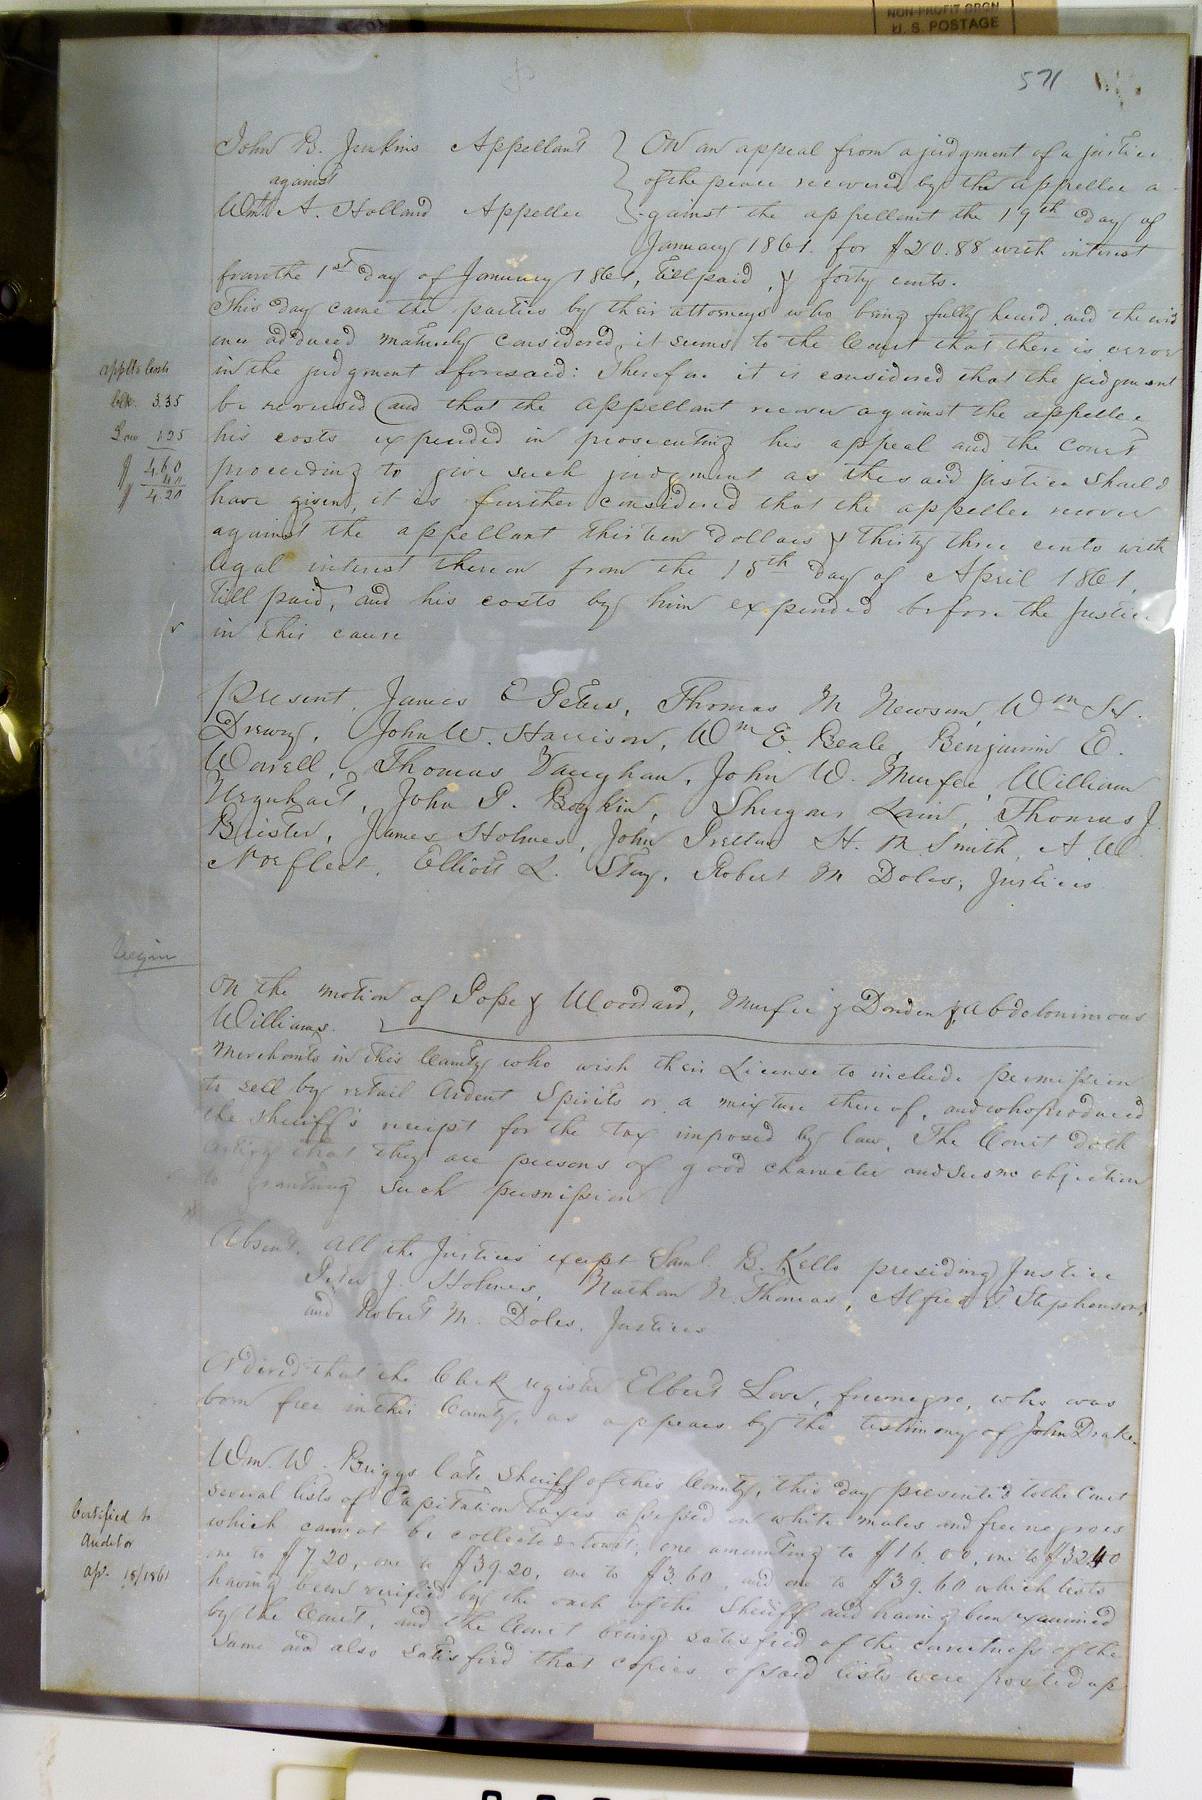 NON-PROFIT ORGN
U. S. POSTAGE
571
John B. Jenkins Appellant } On an appeal from a judgment of a justice
against } of the peace recovered by the appellee a-
Wm. A. Holland Appellee } gainst the appellant the 19th day of
January 1861. for $20.88 with interest
from the 1st day of January 1861, till paid, & forty cents.
This day came the parties by their attorneys who being fully heard and the evid
ence adduced maturely considered, it seems to the Court that there is error
in the judgment aforesaid: Therefore it is considered that the judgment
be reversed and that the appellant recover against the appellee
his costs expended in prosecuting his appeal and the Court
proceeding to give such judgment as the said justice should
have given, it is further considered that the appellee recover
against the appellant thirteen dollars & thirty three cents with
legal interest thereon from the 15th day of April 1861,
till paid, and his costs by him expended before the Justice
in this cause
applts costs
clk. 3.35
Law 1 25
$ 4.60
$ 4.20
Present, James E Peters, Thomas M Newsom, Wm H.
Drewry, John W. Harrison, Wm E. Beale, Benjamin E.
Worrell, Thomas Vaughan, John W. Murfee, William
Urquhart, John P. Boykin, Shugars Lain, Thomas J.
Brister, James Holmes, John Pretlow H. M. Smith, A. W.
Norfleet, Elliott L. Story, Robert M Doles, Justices
On the motion of Pope & Woodard, Murfee & Darden & Abdolonimous
Williams.
Merchants in this County who wish their License to include permission
to sell by retail Ardent Spirits or a mixture thereof, and who produced
the sheriff's receipt for the tax imposed by law, The Court doth
certify that they are persons of good character and sees no objection
to granting such permission
Absent, all the Justices except Saml. B. Kello presiding Justice
Peter J. Holmes, Nathan N. Thomas, Alfred T Stephenson,
and Robert M. Doles, Justices
Ordered that the Clerk register Elbert Love, free negro, who was
born free in this County, as appears by the testimony of John Drake.
Wm. W. Briggs late Sheriff of this County, this day presented to the Court
several lists of Capitation taxes assessed on white males and free negroes
which cannot be collected to wit: one amounting to $16.00, one to $32.40
one to $7.20, one to $39.20, one to $3.60, and one to $39.60 which lists
having been verified by the oath of the Sheriff and having been examined
by the Court, and the Court being satisfied of the correctness of the
same and also satisfied that copies of said lists were posted up
Certified to
Auditor
ap. 18/1861